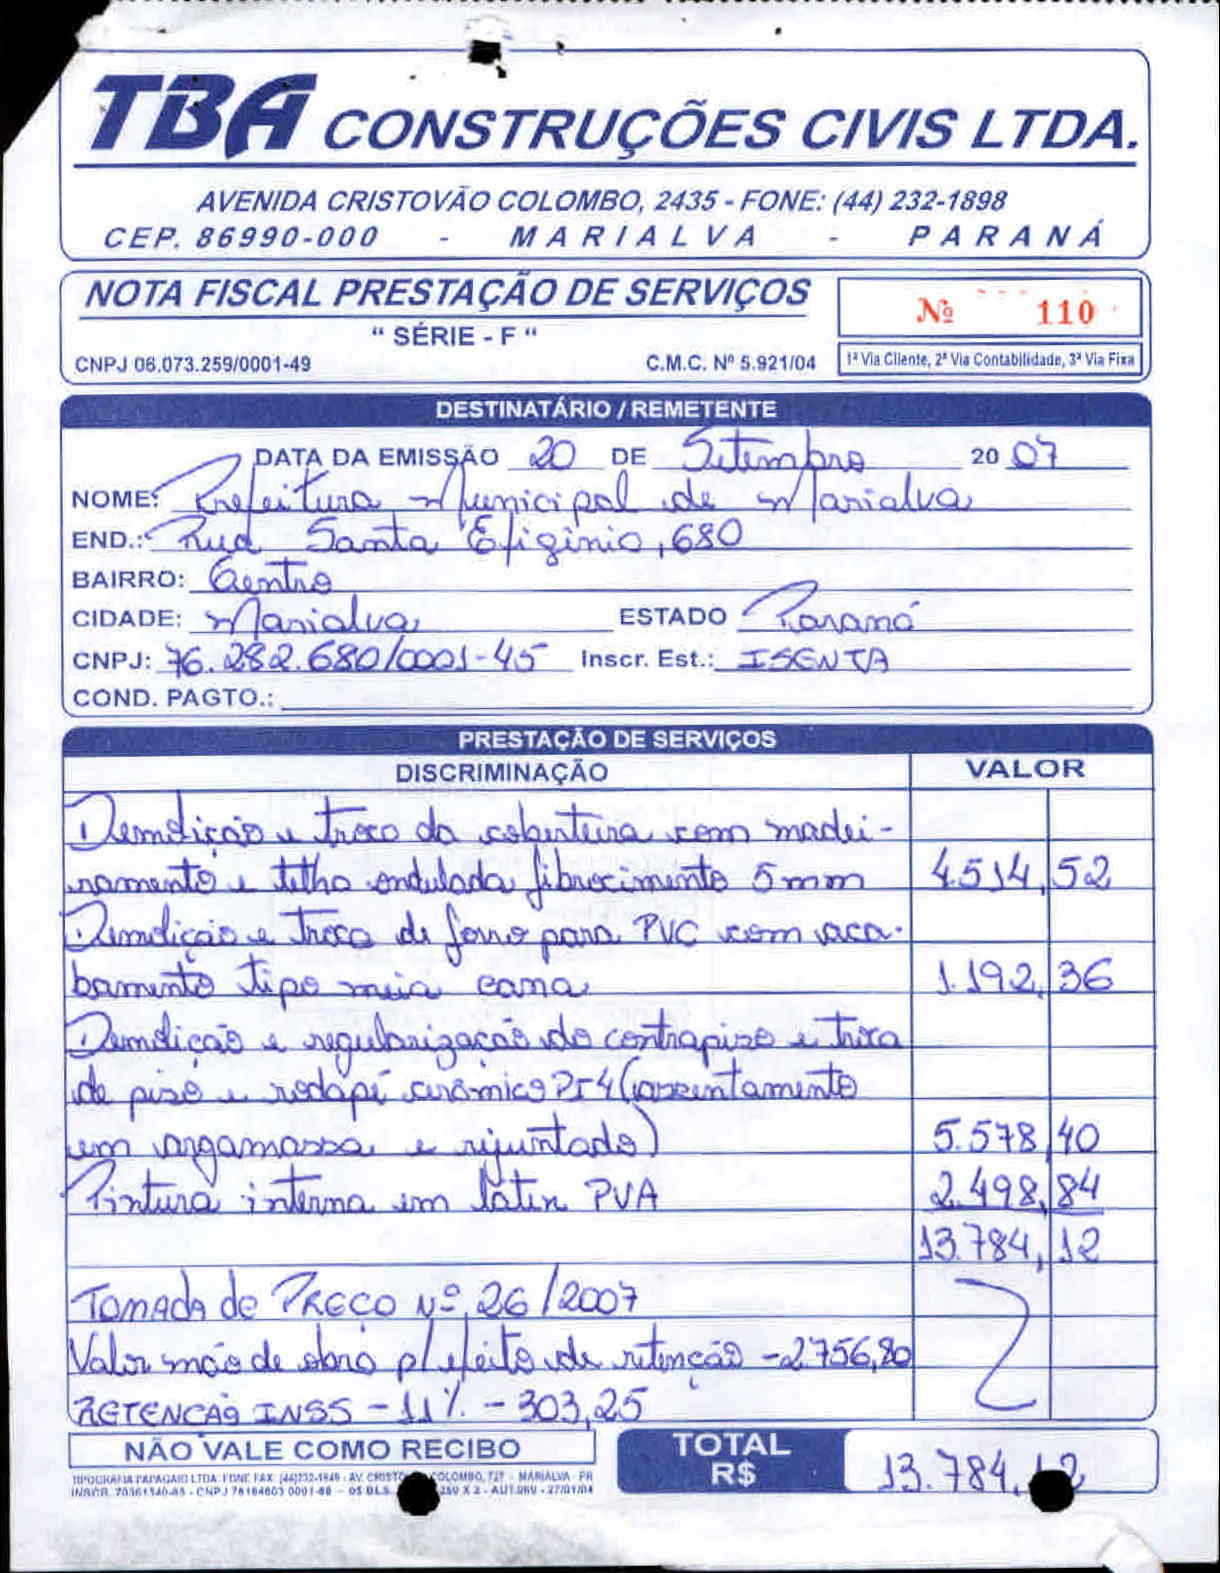 TBA CONSTRUÇÕES CIVIS LTDA.
AVENIDA CRISTOVÃO COLOMBO, 2435 - FONE: (44) 232-1898
CEP. 86990-000 - MARIALVA - PARANÁ
NOTA FISCAL PRESTAÇÃO DE SERVIÇOS
Nº 110
" SÉRIE - F "
CNPJ 06.073.259/0001-49 C.M.C. Nº 5.921/04
1ª Via Cliente, 2ª Via Contabilidade, 3ª Via Fixa
DESTINATÁRIO / REMETENTE
DATA DA EMISSÃO 20 DE Setembro 20 07
NOME: Prefeitura Municipal de Marialva
END.: Rua Santa Efigênia, 680
BAIRRO: Centro
CIDADE: Marialva ESTADO Paraná
CNPJ: 76.282.680/0001-45 Inscr. Est.: ISENTA
COND. PAGTO.:
PRESTAÇÃO DE SERVIÇOS
DISCRIMINAÇÃO VALOR
Demolição e troca da cobertura com madei-
ramento e telha ondulada fibrocimento 5mm 4.514,52
Demolição e troca de forro para PVC com aca-
bamento tipo meia cana 1.192,36
Demolição e regularização do contrapiso e troca
de piso e rodapé cerâmico PI4 (assentamento
em argamassa e rejuntado) 5.578,40
Pintura interna em latex PVA 2.498,84
13.784,12
Tomada de Preço nº 26/2007
Valor mão de obra p/ efeito de retenção - 2756,80
RETENÇÃO INSS - 11% - 303,25
NÃO VALE COMO RECIBO
TOTAL
R$ 13.784, 2
TIPOGRAFIA PAPAGAIO LTDA. FONE FAX (44)232-1849 - AV. CRISTO COLOMBO, 727 - MARIALVA - PR
INSCR. 70361340-85 - CNPJ 78184603 0001-88 - 05 BLS. 250 X 2 - AUT. 089 - 27/01/04